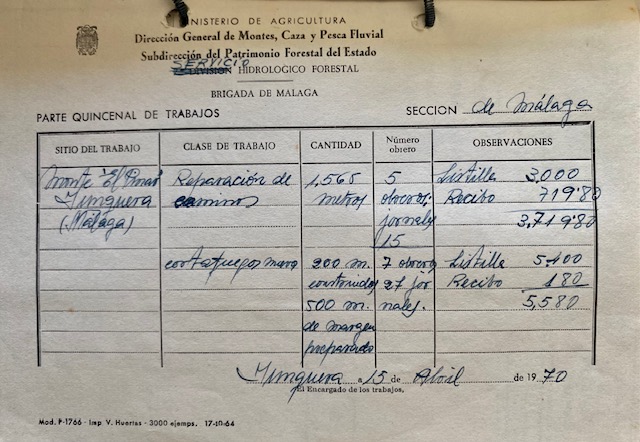 MINISTERIO DE AGRICULTURA
Dirección General de Montes, Caza y Pesca Fluvial
Subdirección del Patrimonio Forestal del Estado
SERVICIO
DIVISION HIDROLOGICO FORESTAL
BRIGADA DE MALAGA
PARTE QUINCENAL DE TRABAJOS SECCION de Málaga
SITIO DEL TRABAJO CLASE DE TRABAJO CANTIDAD Número obrero OBSERVACIONES
Monte "El Pinar" Reparación de 1,565 5 Listilla 3,000
Yunguera caminos metros obreros; Recibo 719'80
(Málaga) jornales 3,719'80
15
cortafuegos nuevo 200 m. 7 obreros Listilla 5,400
construidos 27 jor Recibo 180
500 m. nales. 5,580
de margen
preparado
Yunguera a 15 de Abril de 1970
El Encargado de los trabajos,
Mod. P-1766 - Imp V. Huertas - 3000 ejemps. 17-10-64